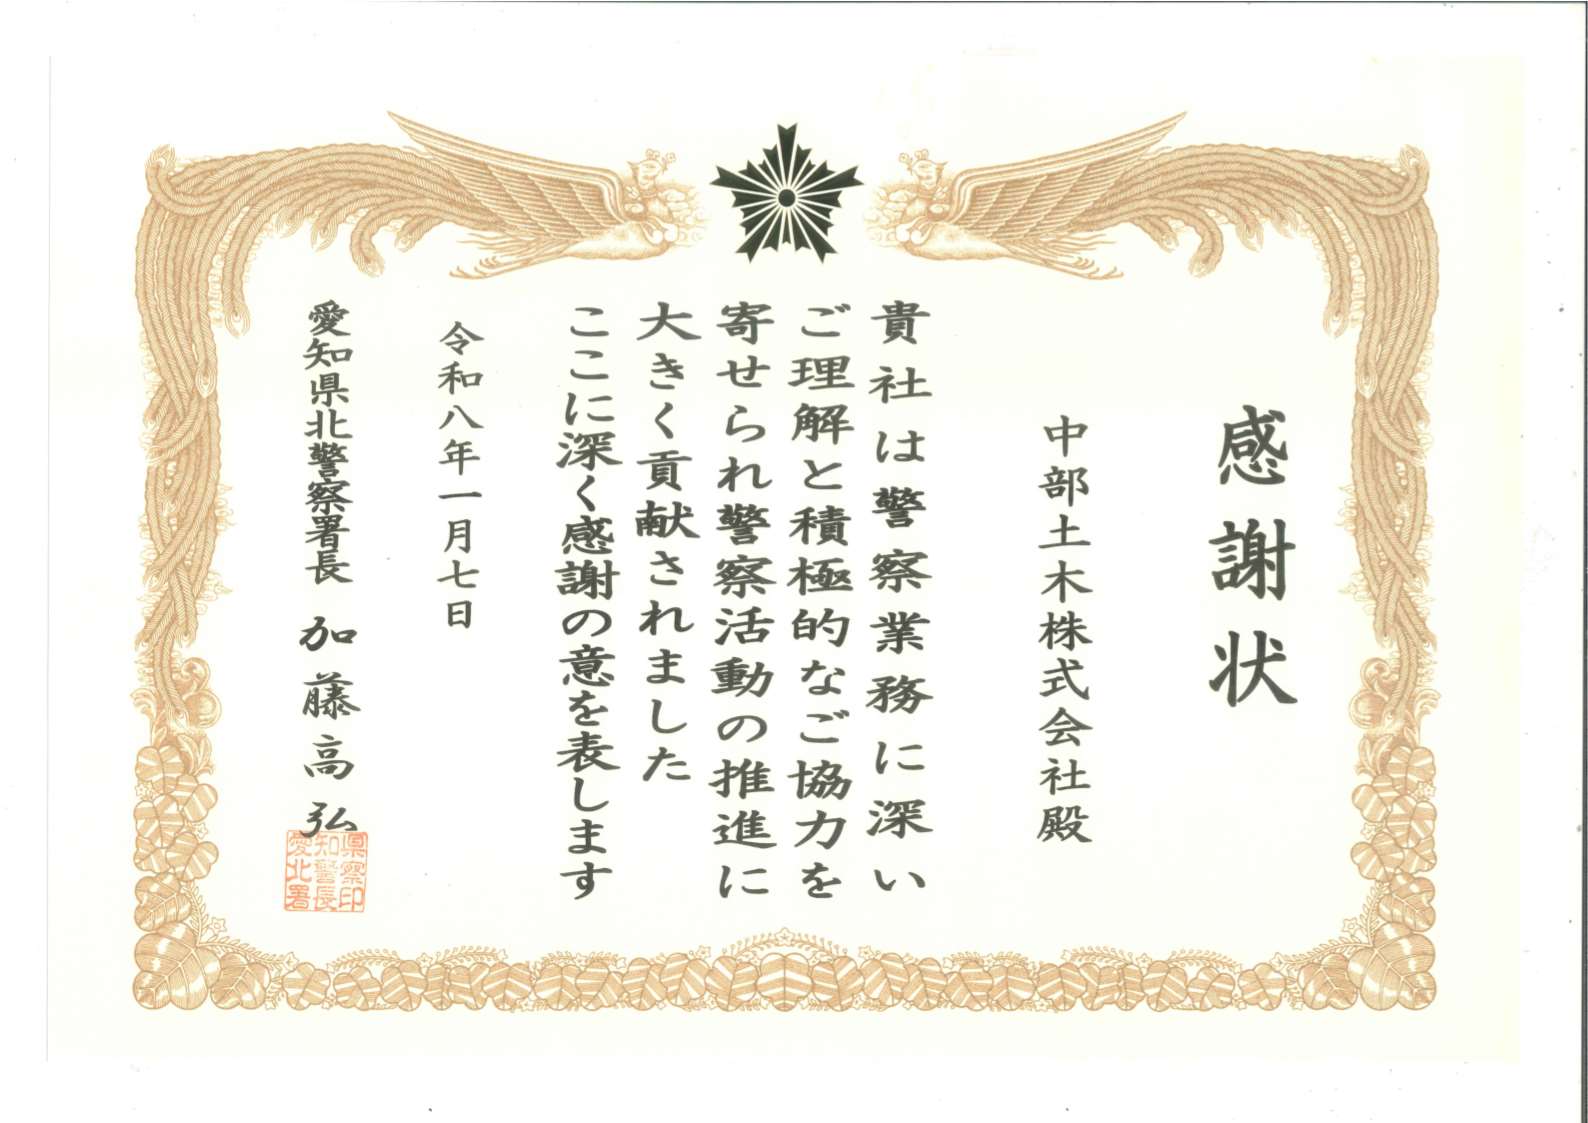 感謝状
中部土木株式会社殿
貴社は警察業務に深い
ご理解と積極的なご協力を
寄せられ警察活動の推進に
大きく貢献されました
ここに深く感謝の意を表します
令和八年一月七日
愛知県北警察署長 加藤高弘
県察印
知警長
愛北署